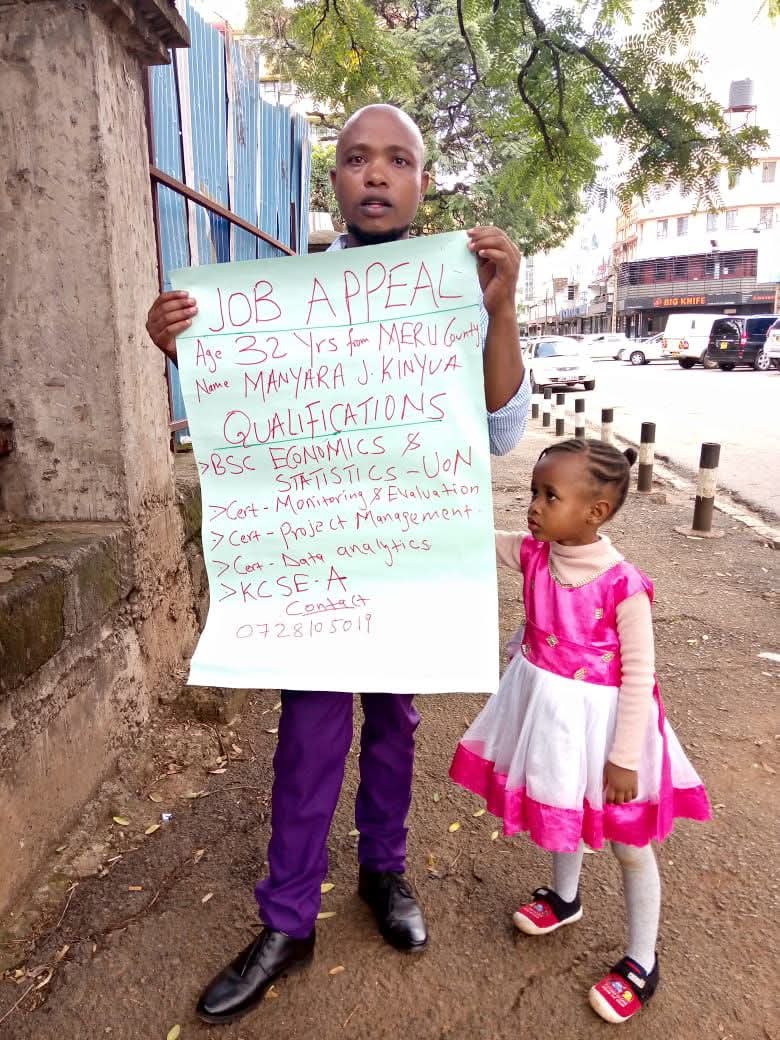 JOB APPEAL
Age 32 Yrs from MERU County
Name MANYARA J. KINYUA
QUALIFICATIONS
>BSC ECONOMICS &
STATISTICS - UoN
>Cert - Monitoring & Evaluation
>Cert - Project Management.
>Cert - Data analytics
>KCSE - A
Contact
0728105019
BIG KNIFE